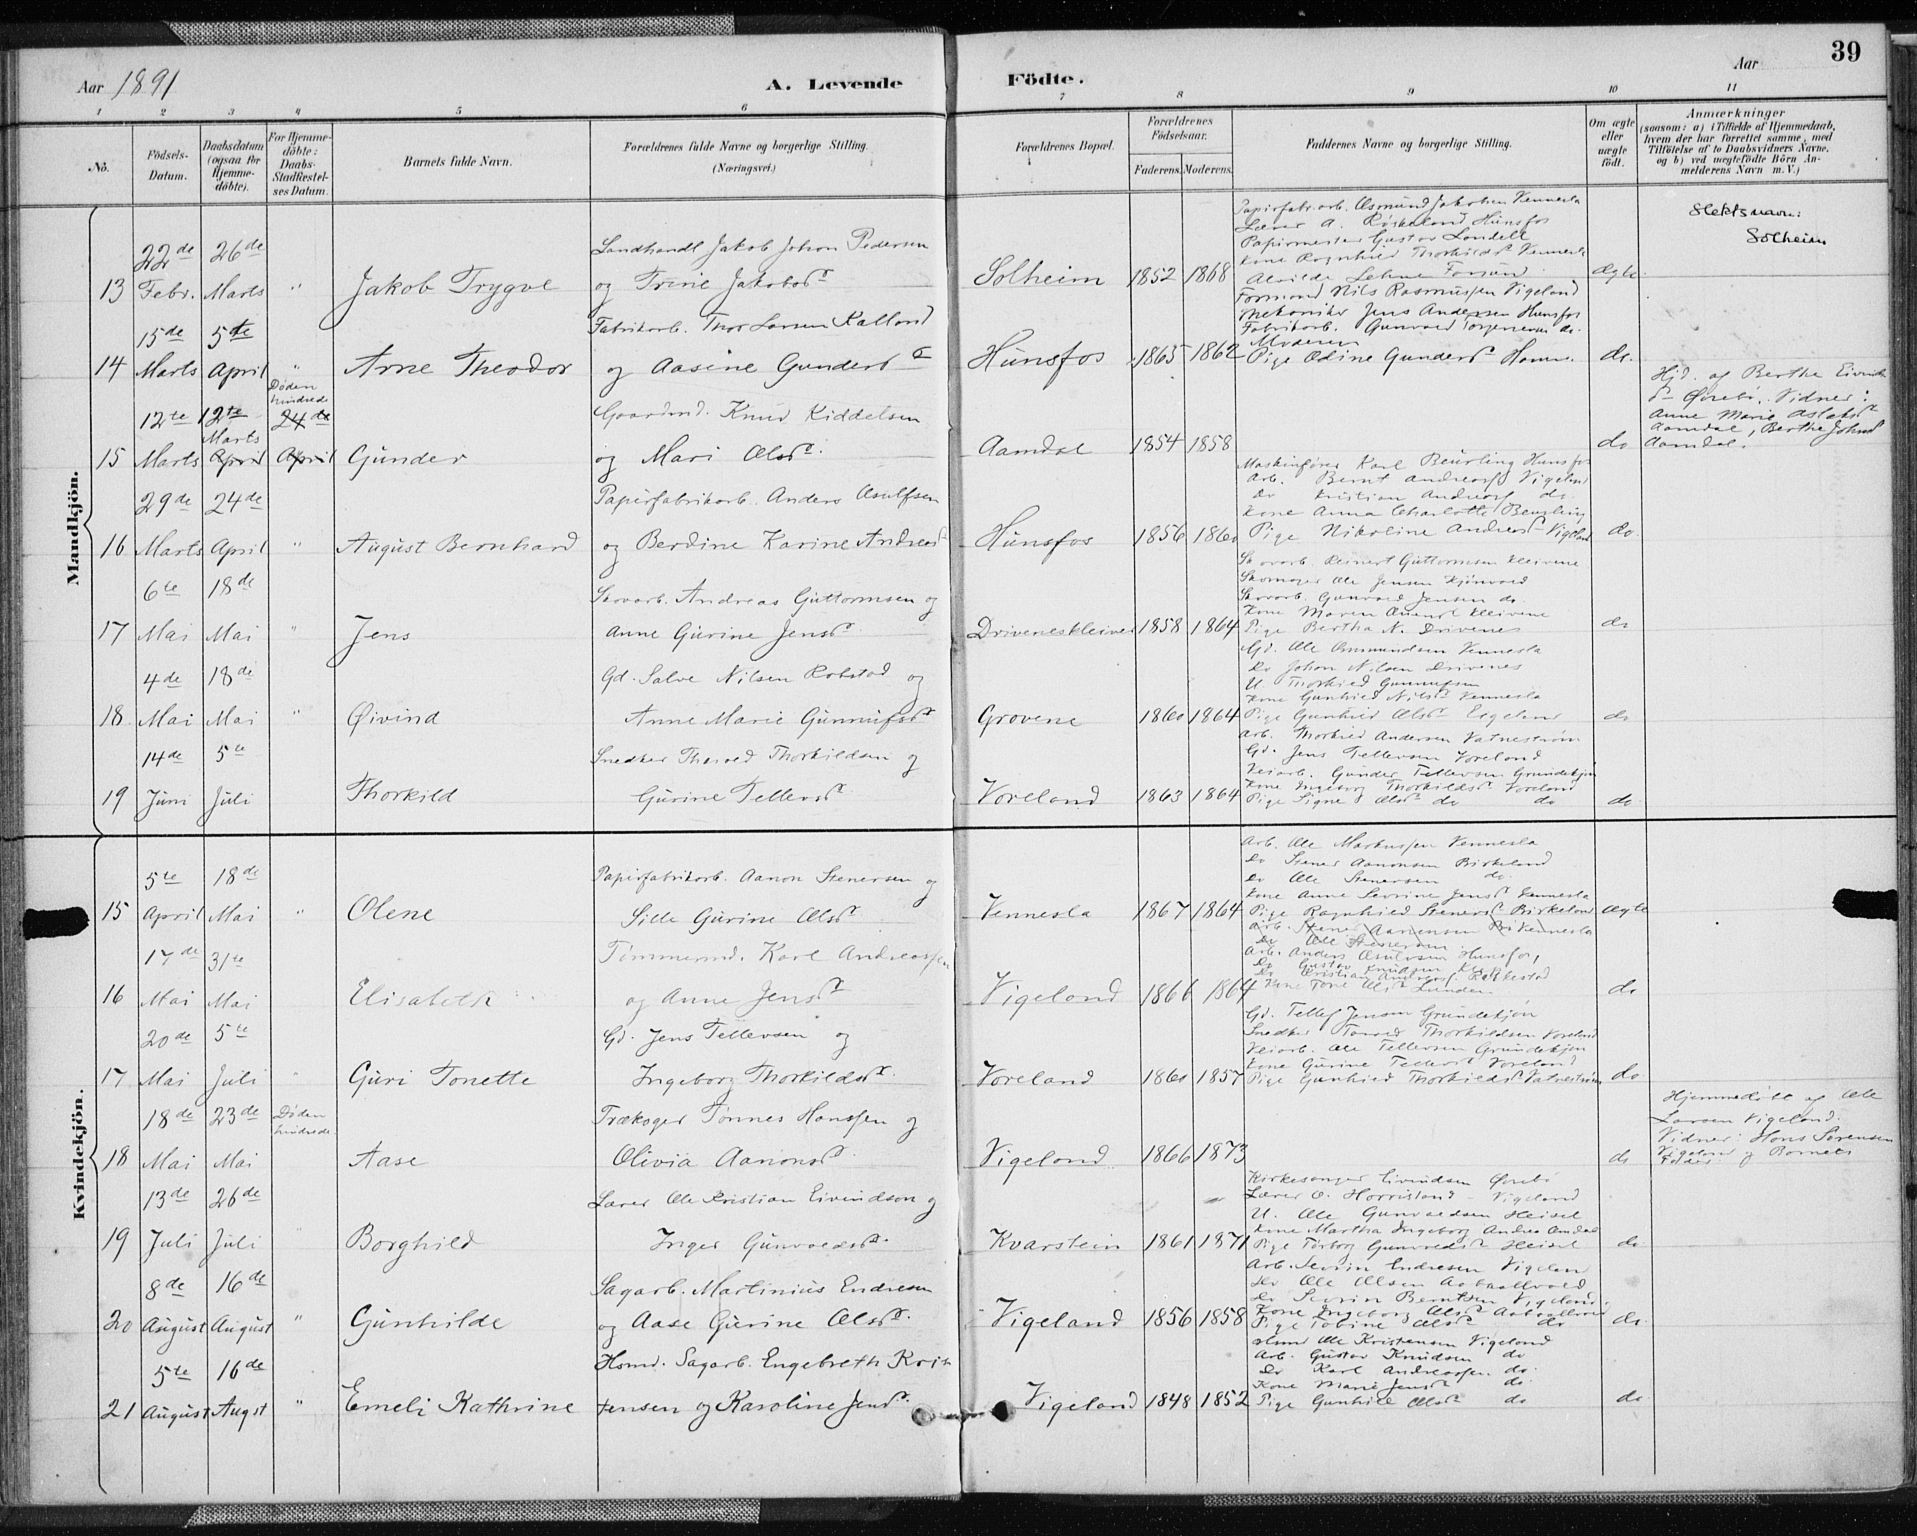 Aar 1891
A. Levende
Födte.
Aar
39
1 2 3 4 5 6 7 8 9 10 11
No.
Födsels-Datum.
Daabsdatum (ogsaa for Hjemme-døbte).
For Hjemme-døbte: Daabs-Stadfæstel-ses Datum.
Barnets fulde Navn.
Forældrenes fulde Navne og borgerlige Stilling. (Næringsvei.)
Forældrenes Bopæl.
Forældrenes Födselsaar.
Faderens. Moderens.
Faddernes Navne og borgerlige Stilling.
Om ægte eller uægte födt.
Anmærkninger
(saasom: a) i Tilfælde af Hjemmedaab,
hvem der har forrettet samme, med
Tilföielse af to Daabsvidners Navne,
og b) ved uægtefödte Börn An-
melderens Navn m. V.)
Mandkjön.
22de 26de Landhandl Jakob Johan Pedersen
13 Febr. Marts " Jakob Trygve og Trine Jakobsd. Solheim 1852 1868 Ægte
Papirfabr.arb. Asmund Jakobsen Vennesla
Lærer A. Røskeland Hunsfos
Papirmester Gustav Londell
Kone Ragnhild Thorkildsd Vennesla
Slektsnavn:
Solheim
15de 5te Fabrikarb. Thor Larsen Kalland
14 Marts April " Arne Theodor og Aasine Gundersd Hunsfos 1865 1862 do.
Formand Nils Rasmussen Vigeland
Mekaniker Jens Andersen Hunsfos
Fabrikarb. Gunvald Torjensen do.
Moderen
Pige Edine Gundersd Homme
12te 12te Marts Døden hindrede 24de Gaardmd. Knud Kiddelsen
15 Marts April April Gunder og Mari Olsd. Aamdal 1854 1858 do
Hjd. af Berthe Eivinds
d Ørebø. Vidner:
Anne Marie Aslaksd
Aamdal, Berthe Johnsd
Aamdal.
29de 24de Papirfabrikarb. Anders Asulfsen
16 Marts April " August Bernhard og Berdine Karine Andreasd Hunsfos 1856 1860 do.
Maskinfører Karl Beurling Hunsfos
Arb. Bernt Andreass Vigeland
do Kristian Andreass do.
Kone Anna Charlotte Beurling
Pige Nikoline Andreasd Vigeland
6te 18de Skovarb. Andreas Guttormsen og
17 Mai Mai " Jens Anne Gurine Jensd. Driveneskleiven 1858 1864 do
Skovarb. Reinert Guttormsen Kleivene
Skomager Ole Jensen Kjønvald
Skovarb. Gunvald Jensen do.
Pige Bertha N. Drivenes
4de 18de Gd. Salve Nilsen Robstad og
18 Mai Mai " Øivind Anne Marie Gunnufsd Grovene 1860 1864 do
Gd. Ole Omundsen Vennesla
do Johan Nilsen Drivenes
U. Thorkild Gunnufsen
Kone Gunhild Nilsd Vennesla
Pige Gunhild Olsd
14de 5te Snedker Tharald Thorkildsen og
19 Juni Juli Thorkild Gurine Tellefsd Voreland 1863 1864 do
Arb. Thorkild Andersen Vatnestrøm
Gd. Jens Tellefsen Voreland
Veiarb. Gunder Tellefsen Grundekjøn
Kone Ingeborg Thorkildsd Voreland
Pige Signe Olsd do do
Kvindekjön.
5te 18de Papirfabrikarb. Aanon Stenersen og
15 April Mai " Olene Sille Gurine Olsd Vennesla 1867 1864 Ægte
Arb. Ole Markussen Vennesla
do Stener Aanonsen Birkeland
do Ole Stenersen do.
Kone Anne Sevrine Jensd Vennesla
Pige Ragnhild Stenersd Birkeland
17de 31te Tømmermd. Karl Andreassen
16 Mai Mai Elisabeth og Anne Jensd Vigeland 1866 1864 do
Arb. Anders Asulvsen Hunsfos,
do Gustav Knudsen
Kone Tone Olsd Lunden
20de 5te Gd. Jens Tellevsen og
17 Mai Juli " Guri Tonette Ingeborg Thorkildsd. Voreland 1860 1857 do
Gd. Tellef Jensen Grundekjøn
Snedker Thorvald Thorkildsen Voreland
Veiarb. Ole Tellevsen Grundekjøn
Kone Gurine Tellevsd Voreland
Pige Gunhild Thorkildsd Vatnestrøm
18de 23de Døden hindrede Trækoger Tønnes Hanssen og
18 Mai Mai Aase Olivia Aanonsd. Vigeland 1866 1873 do
Hjemmedøbt af Ole
Larsen Vigeland.
Vidner: Hans Sørensen
Vigeland og Barnets
Fader.
13de 26de Lærer Ole Kristian Eivindson og
19 Juli Juli " Borghild Inger Gunvaldsd. Kvarstein 1861 1871 do
Kirkesanger Eivindsen Ørebø
Lærer O. Harrisland - Vigeland
U. Ole Gunvaldsen Heisel
Kone Martha Ingeborg Andrea Omdal
Pige Torborg Gunvaldsd Heisel
8de 16de Sagarb. Martinius Endresen
20 August August " Gunhilde og Aase Gurine Olsd. Vigeland 1856 1858 do
Arb. Sevrin Endresen Vigeland
do Ole Olsen
do Sevrin Berntsen Vigeland
Kone Ingeborg Olsd
Pige Tobine Olsd do
5te 16de Hsmd. Sagarb. Engebreth Kris
21 August Augst " Emeli Kathrine tensen og Karoline Jensd. Vigeland 1848 1852 do
Hsmd Ole Kristensen Vigeland
Arb. Gustav Knudsen do
do Karl Andreassen do.
Kone Marie Jensd do.
Pige Gunhild Olsd do